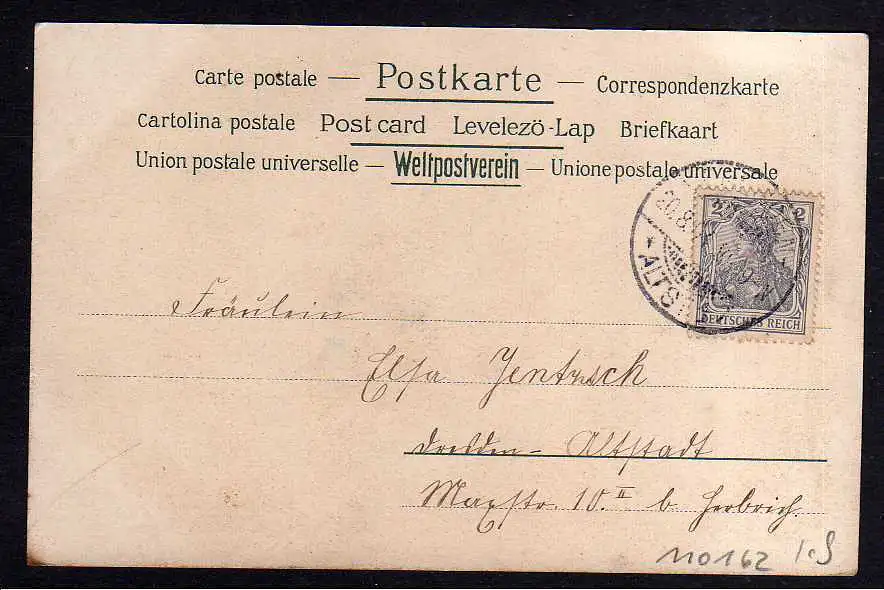 Carte postale — Postkarte — Correspondenzkarte
Cartolina postale Post card Levelezö-Lap Briefkaart
Union postale universelle — Weltpostverein — Unione postale universale
20.8.
* ALTST
2 2
DEUTSCHES REICH
Fräulein
Elsa Jentzsch
Dresden-Altstadt
Maxstr. 10. II b. Herbrich.
110162 I.S